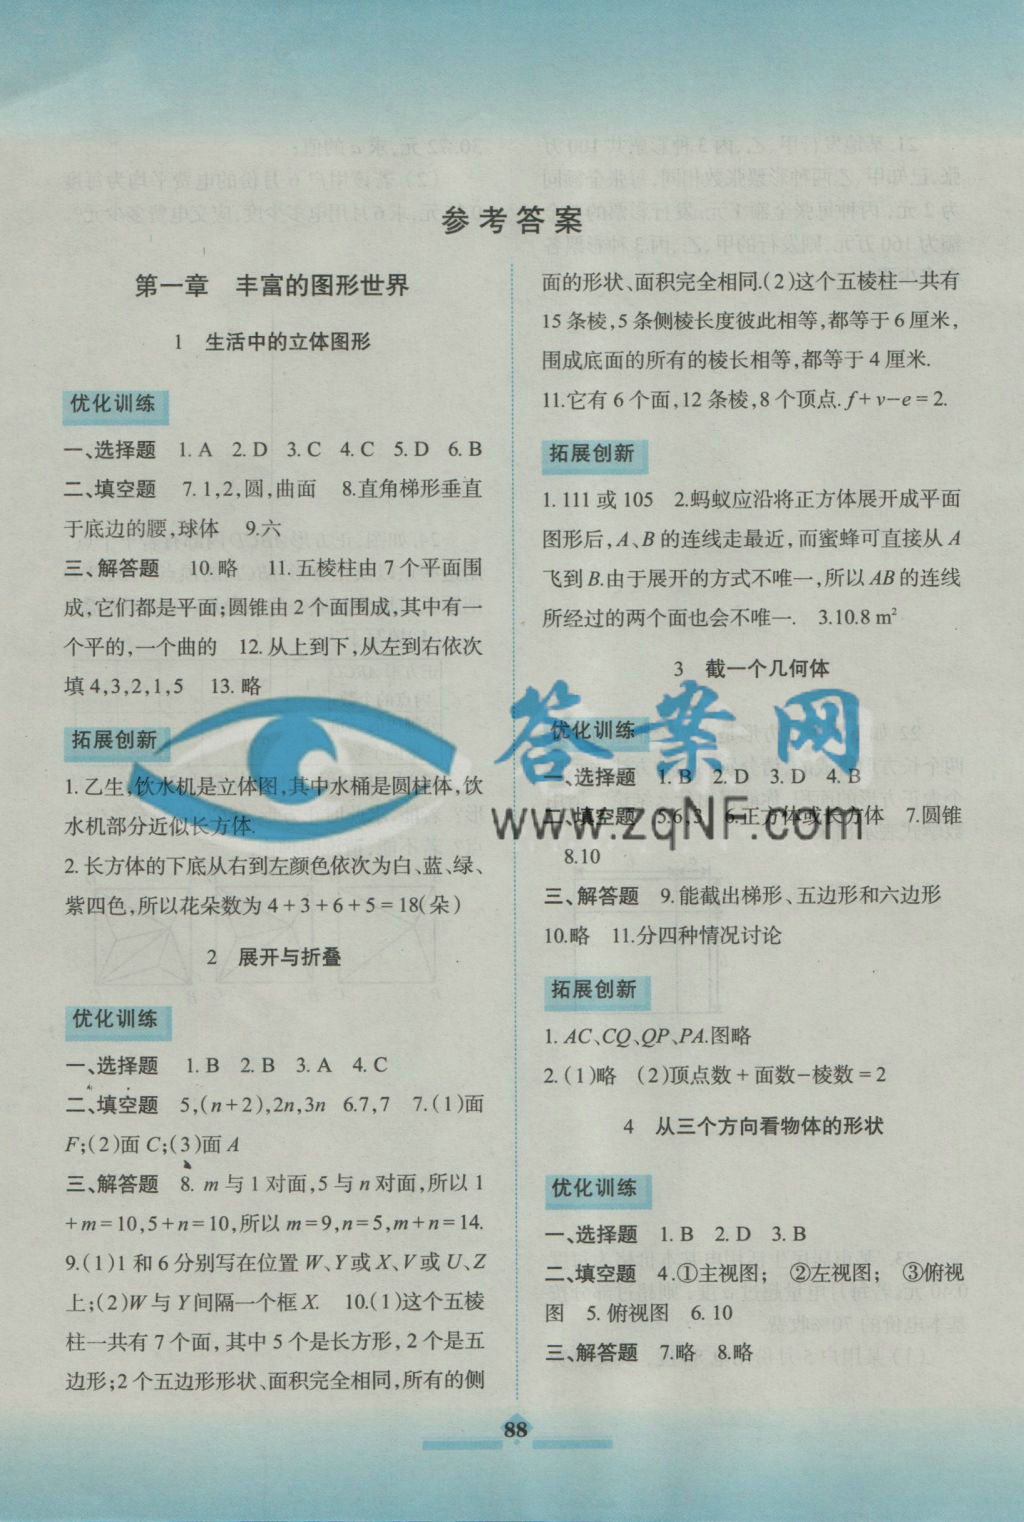 参考答案
第一章 丰富的图形世界
1 生活中的立体图形
优化训练
一、选择题 1. A 2. D 3. C 4. C 5. D 6. B
二、填空题 7. 1,2,圆,曲面 8.直角梯形垂直
于底边的腰,球体 9.六
三、解答题 10.略 11.五棱柱由7个平面围
成,它们都是平面;圆锥由2个面围成,其中有一
个平的,一个曲的 12.从上到下,从左到右依次
填4,3,2,1,5 13.略
拓展创新
1.乙生,饮水机是立体图,其中水桶是圆柱体,饮
水机部分近似长方体.
2.长方体的下底从右到左颜色依次为白、蓝、绿、
紫四色,所以花朵数为4+3+6+5=18(朵)
2 展开与折叠
优化训练
一、选择题 1. B 2. B 3. A 4. C
二、填空题 5,(n+2),2n,3n 6.7,7 7.(1)面
F;(2)面C;(3)面A
三、解答题 8. m与1对面,5与n对面,所以1
+m=10,5+n=10,所以m=9,n=5,m+n=14.
9.(1)1和6分别写在位置W、Y或X、V或U、Z
上;(2)W与Y间隔一个框X. 10.(1)这个五棱
柱一共有7个面,其中5个是长方形,2个是五
边形;2个五边形形状、面积完全相同,所有的侧
面的形状、面积完全相同.(2)这个五棱柱一共有
15条棱,5条侧棱长度彼此相等,都等于6厘米,
围成底面的所有的棱长相等,都等于4厘米.
11.它有6个面,12条棱,8个顶点. f+v-e=2.
拓展创新
1. 111或105 2.蚂蚁应沿将正方体展开成平面
图形后,A、B的连线走最近,而蜜蜂可直接从A
飞到B.由于展开的方式不唯一,所以AB的连线
所经过的两个面也会不唯一. 3.10.8 m²
3 截一个几何体
优化训练
一、选择题 1. B 2. D 3. D 4. B
二、填空题 5.6,3 6.正方体或长方体 7.圆锥
8.10
三、解答题 9.能截出梯形、五边形和六边形
10.略 11.分四种情况讨论
拓展创新
1. AC、CQ、QP、PA.图略
2.(1)略 (2)顶点数+面数-棱数=2
4 从三个方向看物体的形状
优化训练
一、选择题 1. B 2. D 3. B
二、填空题 4.①主视图; ②左视图; ③俯视
图 5.俯视图 6.10
三、解答题 7.略 8.略
88
答案网
www.zqNF.com